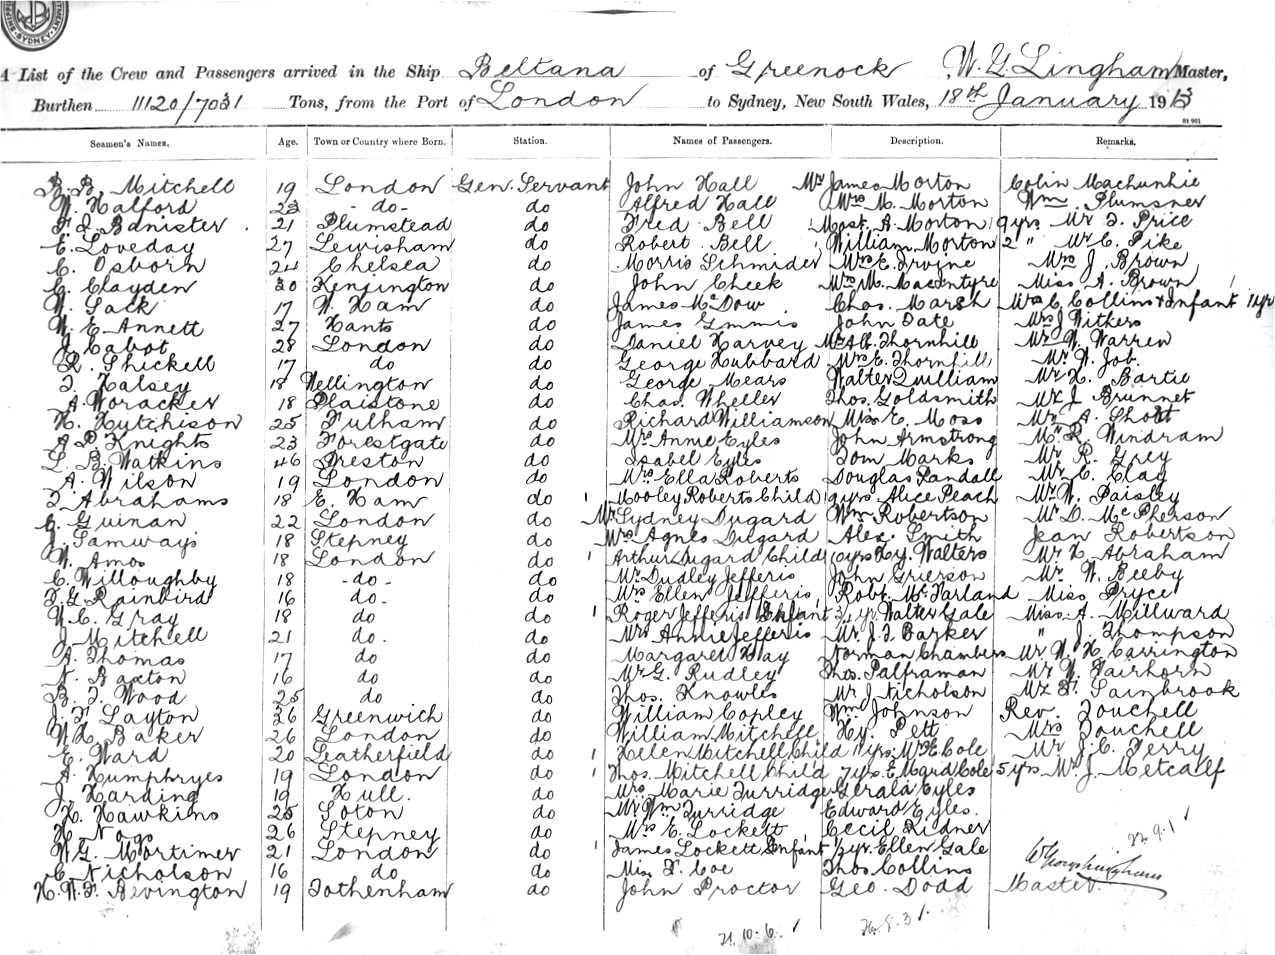 SYDNEY.
A List of the Crew and Passengers arrived in the Ship Beltana of Greenock W. G. Lingham Master,
Burthen 11120/7031 Tons, from the Port of London to Sydney, New South Wales, 18th January 1913
Seamen's Names. Age. Town or Country where Born. Station. Names of Passengers. Description. Remarks.
B. B. Mitchell 19 London Gen. Servant John Hall Mr James Morton Colin Machunhie
W. Halford 23 -do- do Alfred Hall Mrs M. Morton Wm. Plumsner
F. J. Banister 21 Plumstead do Fred Bell 1 Mast. A. Morton 9 yrs Mr F. Price
E. Loveday 27 Lewisham do Robert Bell 1 William Morton 2 " Mr C. Pike
C. Osborn 24 Chelsea do Morris Schmider Mrs E. Irvine Mrs J. Brown
C. Clayden 30 Kensington do John Cheek Mrs M. Macentyre Miss A. Brown
W. Sack 17 W. Ham do James McDow Chas. Marsh Mrs C. Collins & Infant 1 yr
W. E. Annett 27 Hants do James Gmmis John Tate Mrs J Withers
J. Cabot 28 London do Daniel Harvey Mr Alb. Thornhill Mr W. Warren
R. Shickell 17 do do George Hubbard Mrs E. Thornhill Mr W. Job.
T. Halsey 18 Wellington do George Mears Walter Quilliam Mr H. Bartie
A. Woracker 18 Plaistone do Chas. Wheller Thos. Goldsmith Mr J. Brunnet
H. Hutchison 25 Fulham do Richard Williamson Miss E. Moss Mr A. Short
A. P. Knights 23 Forestgate do Mrs Annie Eyles John Armstrong Mr R. Windram
L. B. Watkins 46 Preston do Isabel Eyles Tom Marks Mr R. Grey
A. Wilson 19 London do Mrs Ella Roberts Douglas Randall Mr C. Clay
T. Abrahams 18 E. Ham do 1 Mooley Roberts Child 9 yrs Alice Peach Mr W. Paisley
C. Guinan 22 London do Mr Sydney Dugard Wm Robertson Mr D. McPherson
J. Samways 18 Stepney do Mrs Agnes Dugard Alex. Smith Jean Robertson
W. Amos 18 London do 1 Arthur Dugard Child 10 yrs Hy. Walters Mr H. Abraham
C. Willoughby 18 -do- do Mr Dudley Jefferis John Grierson Mr W. Beeby
F. G. Rainbird 16 do- do Mrs Ellen Jefferis Robt. McFarland Miss Pryce
W. C. Gray 18 do do 1 Roger Jefferis Infant yr. Walter Gale Miss A. Millward
J. Mitchell 21 do. do Mrs Annie Jefferis Mr. J. T. Barker " J. Thompson
A. Thomas 17 do do Margaret Hay Norman Chambers Mr W. H. Carrington
N. Baxton 16 do do Mr G. Rudley Thos. Palframan Mr W. Fairhorn
B. T. Wood 25 do do Thos. Knowles Mr J. Nicholson Mr F. Sainbrook
J. F. Layton 26 Greenwich do William Copley Wm. Johnson Rev. Touchell
W. H. Baker 26 London do William Mitchell Hy. Pett Mrs Touchell
E. Ward 20 Leatherfield do 1 Hellen Mitchell Child 11 yrs. Mrs E Cole Mr J. C. Terry
A. Humphryes 19 London do 1 Thos. Mitchell Child 7 yrs. E. Mard Cole 5 yrs Mr J. Metcalf
J. Harding 19 Hull. do Mrs Marie Turridge Gerald Eyles
H. Hawkins 25 Soton do Mr Wm Turridge Edward Eyles.
H. Nogs 26 Stepney do Mrs E. Lockett Cecil Ridner
W. G. Mortimer 21 London do 1 James Lockett Infant 1/2 yr. Ellen Gale
C. Nicholson 16 do do Miss F. Coe Thos Collins
H. W. F. Bevington 19 Tothenham do John Proctor Geo. Dodd Master.